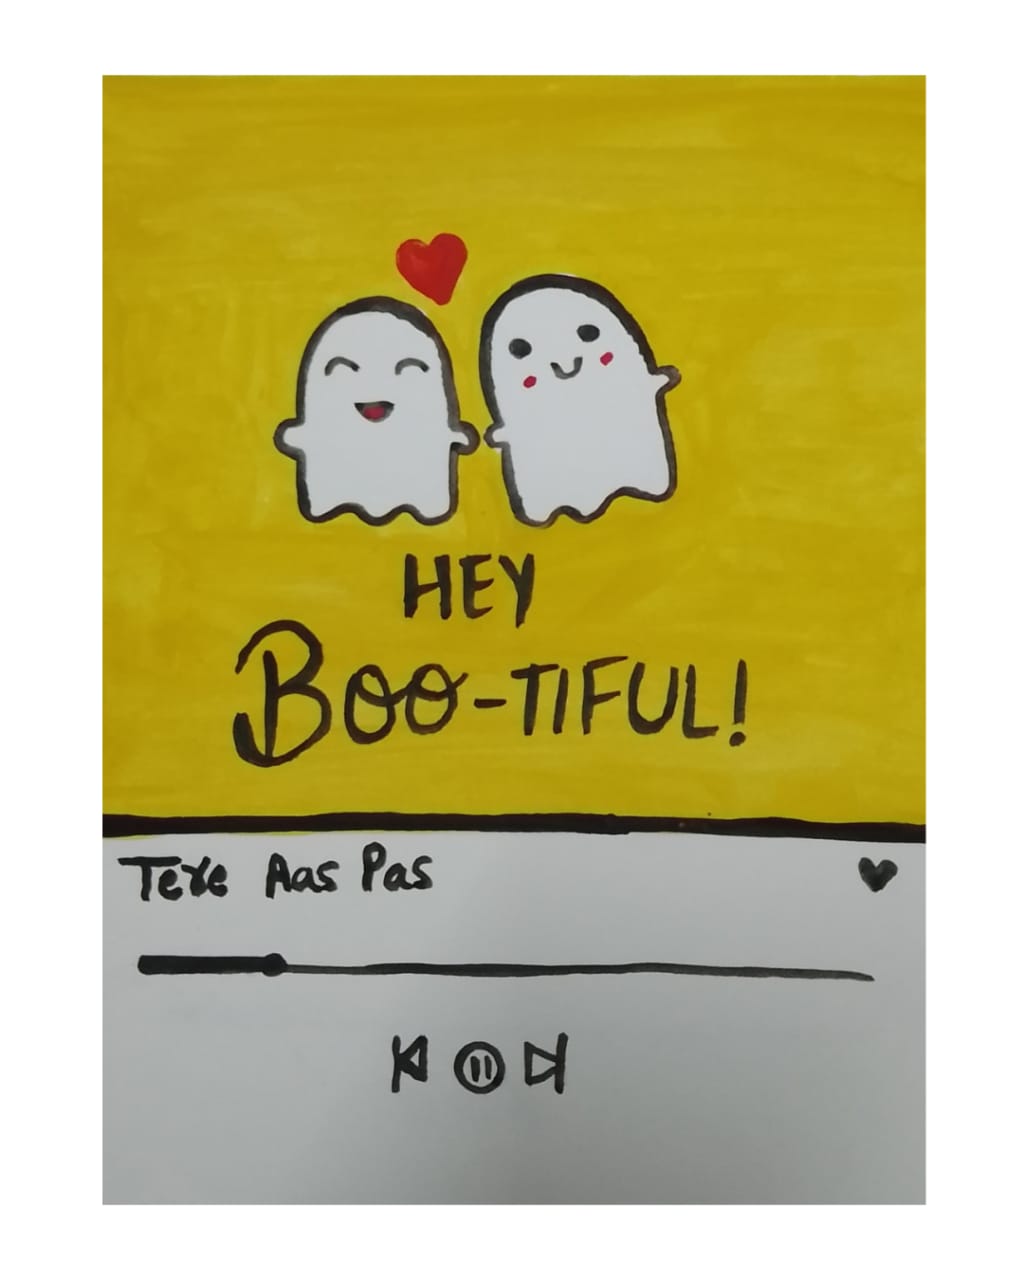 HEY
BOO-TIFUL!
Tere Aas Pas